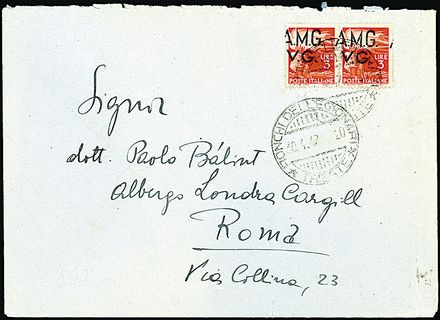 A.M.G. A.M.G.
V.G. V.G.
LIRE 3 LIRE 3
POSTE ITALIANE POSTE ITALIANE
RONCHI DEI LEGIONARI
TRIESTE
Signor
dott. Paolo Bálint
Albergo Londra Cargill
Roma
Via Collina, 23